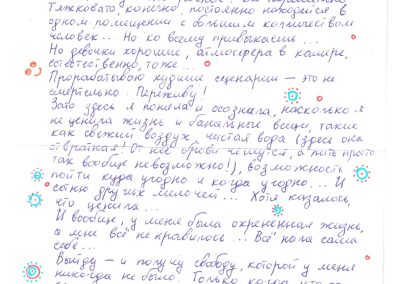 Тяжковато, конечно, постоянно находиться в
одном помещении с бóльшим количеством
человек... Но ко всему привыкаешь...
Но девочки хорошие, атмосфера в камере,
естественно, тоже...
Прорабатываю худшие сценарии — это не
смертельно. Переживу!
Зато здесь я поняла и осознала, насколько я
не ценила жизнь и банальные вещи, такие
как свежий воздух, чистая вода (здесь она
отвратная! От неё брови чешутся, а пить просто
так вообще невозможно!), возможность
пойти куда угодно и когда угодно... И
сотню других мелочей... Хотя казалось,
что ценила...
И вообще, у меня была охрененная жизнь,
а мне всё не нравилось... Всё нала сама
себе...
Выйду — и получу свободу, которой у меня
никогда не было. Только когда что-то